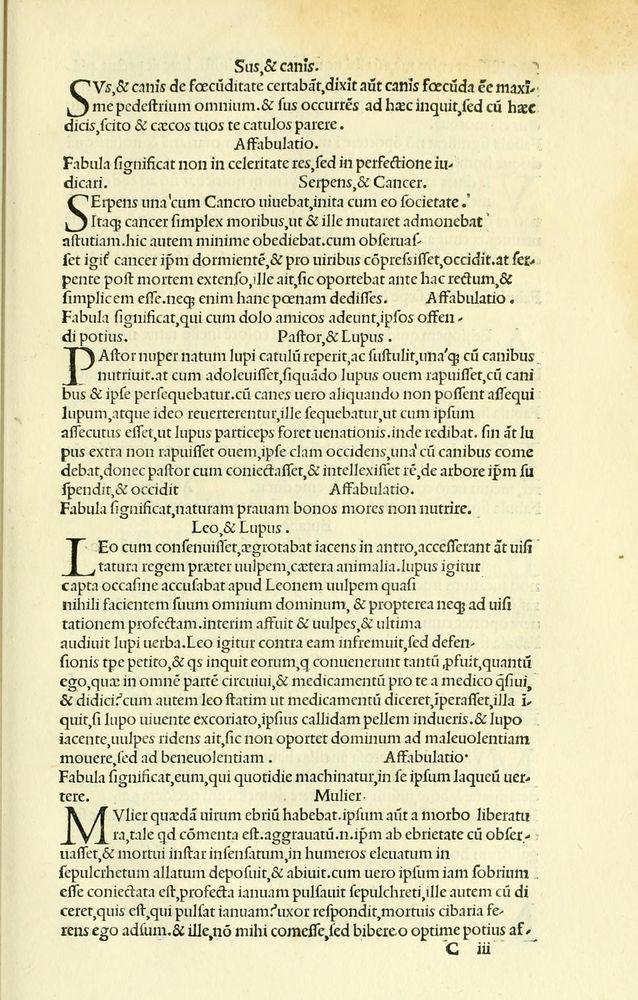 Sus,& canis.
SVs,& canis de fœcūditate certabāt,dixit aūt canis fœcūda eē maxi⸗
me pedestrium omnium.& sus occurrēs ad hæc inquit,sed cū hæc
dicis,scito & cæcos tuos te catulos parere.
Affabulatio.
Fabula significat non in celeritate res,sed in perfectione iu⸗
dicari. Serpens,& Cancer.
SErpens una'cum Cancro uiuebat,inita cum eo societate.
Itaq; cancer simplex moribus,ut & ille mutaret admonebat
astutiam.hic autem minime obediebat.cum obseruas⸗
set igit cancer ipm dormientē,& pro uiribus cōpressisset,occidit.at ser⸗
pente post mortem extenso,ille ait,sic oportebat ante hac rectum,&
simplicem esse.neq; enim hanc pœnam dedisses. Affabulatio.
Fabula significat,qui cum dolo amicos adeunt,ipsos offen⸗
di potius. Pastor,& Lupus.
PAstor nuper natum lupi catulū reperit,ac sustulit,una'q; cū canibus
nutriuit.at cum adoleuisset,siquādo lupus ouem rapuisset,cū cani
bus & ipse persequebatur.cū canes uero aliquando non possent assequi
lupum,atque ideo reuerterentur,ille sequebatur,ut cum ipsum
assecutus esset,ut lupus particeps foret uenationis.inde redibat. sin āt lu
pus extra non rapuisset ouem,ipse clam occidens,una' cū canibus come
debat,donec pastor cum coniectasset,& intellexisset rē,de arbore ipm su
spendit,& occidit Affabulatio.
Fabula significat,naturam prauam bonos mores non nutrire.
Leo,& Lupus.
LEO cum consenuisset,ægrotabat iacens in antro,accesserant āt uisi
tatura regem præter uulpem,cætera animalia.lupus igitur
capta occasiōe accusabat apud Leonem uulpem quasi
nihili facientem suum omnium dominum,& propterea neq; ad uisi
tationem profectam.interim affuit & uulpes,& ultima
audiuit lupi uerba.Leo igitur contra eam infremuit,sed defen⸗
sionis tpe petito,& qs inquit eorum,q conuenerunt tantū pfuit,quantū
ego,quæ in omnē partē circuiui,& medicamentū pro te a medico q̄siui,
& didici?cum autem leo statim ut medicamentū diceret,īperasset,illa i⸗
quit,si lupo uiuente excoriato,ipsius callidam pellem indueris.& lupo
iacente,uulpes ridens ait,sic non oportet dominum ad maleuolentiam
mouere,sed ad beneuolentiam. Affabulatio.
Fabula significat,eum,qui quotidie machinatur,in se ipsum laqueū uer⸗
tere. Mulier.
MVlier quædā uirum ebriū habebat.ipsum aūt a morbo liberatu
ra,tale qd cōmenta est.aggrauatū.n.ipm ab ebrietate cū obser⸗
uasset,& mortui instar insensatum,in humeros eleuatum in
sepulcrhetum allatum deposuit,& abiuit.cum uero ipsum iam sobrium
esse coniectata est,profecta ianuam pulsauit sepulchreti,ille autem cū di
ceret,quis est,qui pulsat ianuam?uxor respondit,mortuis cibaria fe⸗
rens ego adsum.& ille,nō mihi comesse,sed bibere o optime potius af⸗
C iii